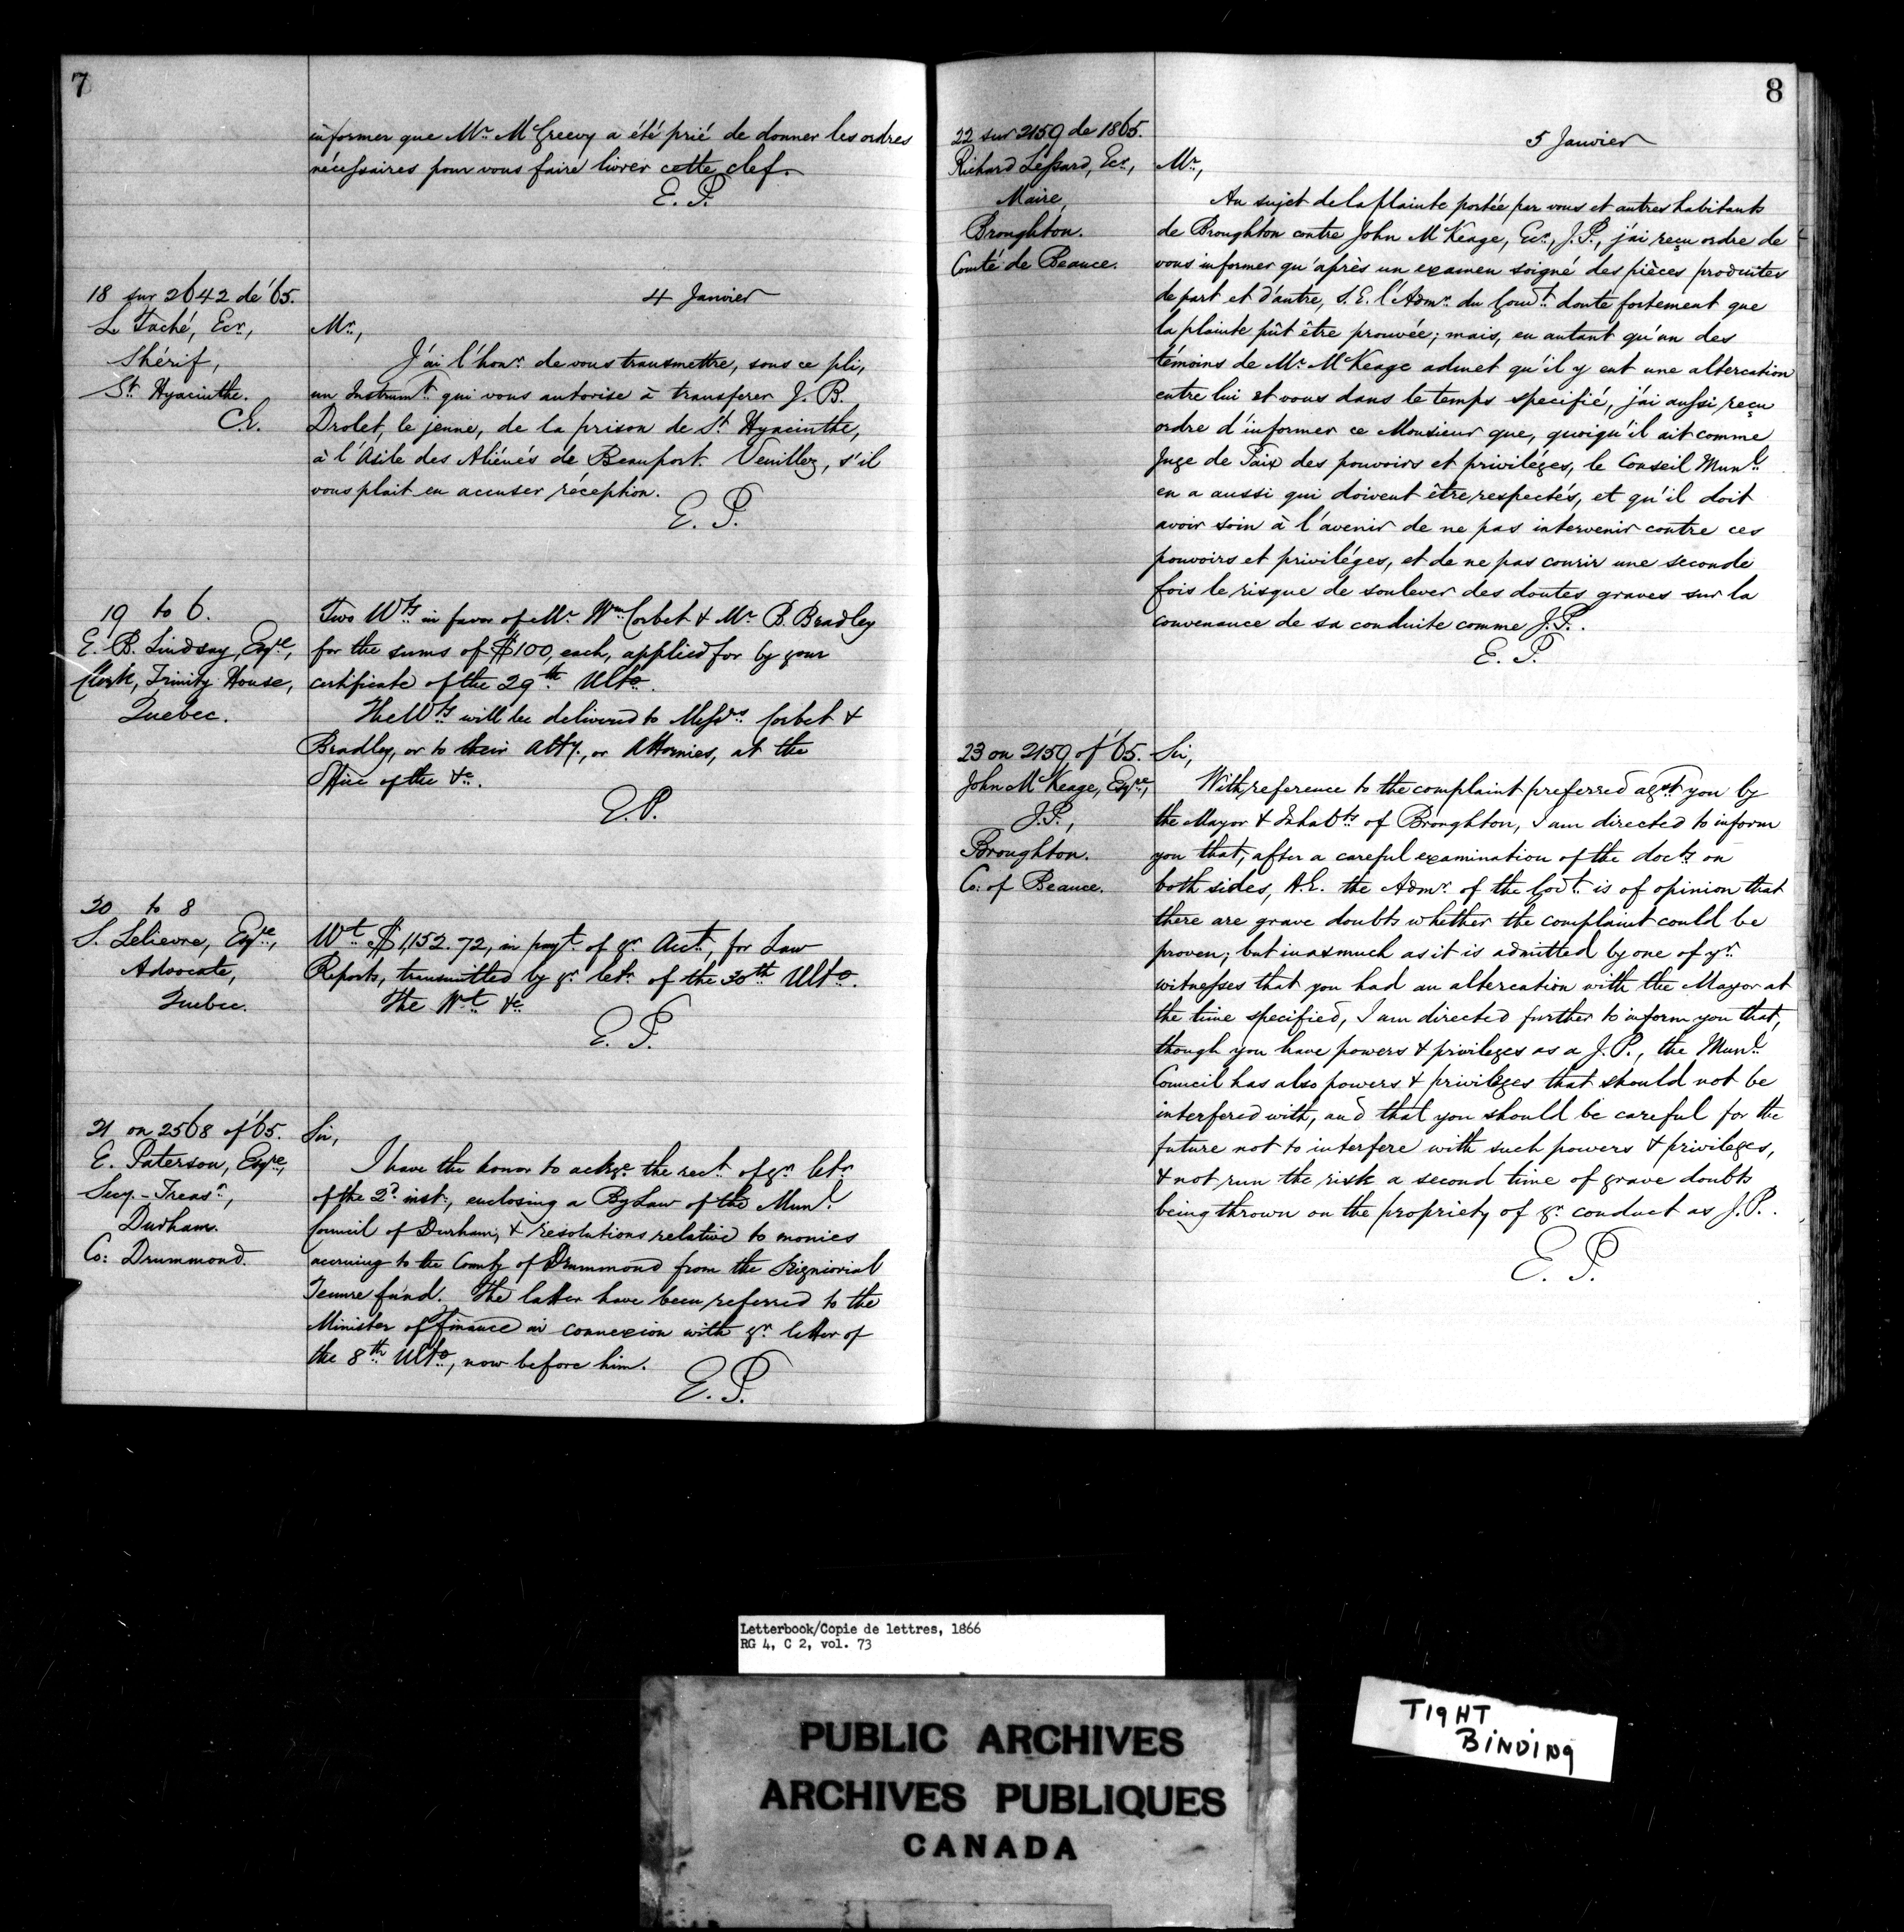 7
informer que Mr. McGreevy a été prié de donner les ordres
nécessaires pour vous faire livrer cette clef.
E. P.
18 sur 2642 de '65.
L. Taché, Ecr.,
Shérif,
St. Hyacinthe.
C.E.
4 Janvier
Mr.,
J'ai l'honr. de vous transmettre, sous ce pli,
un Instrumt. qui vous autorise à transferer J. B.
Drolet, le jeune, de la prison de St. Hyacinthe,
à l'Asile des Aliénés de Beauport. Veuillez, s'il
vous plait en accuser réception.
E. P.
19 to 6.
E. B. Lindsay, Esqre.,
Clerk, Trinity House,
Quebec.
Two Wts. in favor of Mr. Wm. Corbet & Mr. B. Bradley
for the sums of $100, each, applied for by your
certificate of the 29th. Ulto.
The Wts. will be delivered to Messrs. Corbet &
Bradley, or to their Atty., or Attornies, at the
Office of the &c.
E. P.
20 to 8
S. Lelievre, Esqre.,
Advocate,
Quebec.
Wt. $1,152.72, in payt. of yr. Acct., for Law
Reports, transmitted by yr. letr. of the 30th. Ulto.
The Wt. &c.
E. P.
21 on 2568 of '65.
E. Paterson, Esqre.,
Secy.-Treasr.,
Durham.
Co: Drummond.
Sir,
I have the honor to ackge. the rect. of yr. letr.
of the 2d. inst., enclosing a By Law of the Munl.
Council of Durham, & resolutions relative to monies
accruing to the County of Drummond from the Seigniorial
Tenure fund. The latter have been referred to the
Minister of Finance in connexion with yr. letter of
the 8th. Ulto., now before him.
E. P.
8
22 sur 2159 de 1865.
Richard Lessard, Ecr.,
Maire,
Broughton.
Comté de Beauce.
5 Janvier
Mr.,
Au sujet de la plainte portée par vous et autres habitants
de Broughton contre John McKeage, Ecr., J.P., j'ai reçu ordre de
vous informer qu'après un examen soigné des pièces produites
de part et d'autre, S.E. l'Admr. du Gouvt. doute fortement que
la plainte pût être prouvée; mais, en autant qu'un des
témoins de Mr. McKeage admet qu'il y eut une altercation
entre lui et vous dans le temps specifié, j'ai aussi reçu
ordre d'informer ce Monsieur que, quoiqu'il ait comme
Juge de Paix des pouvoirs et priviléges, le Conseil Munl.
en a aussi qui doivent être respectés, et qu'il doit
avoir soin à l'avenir de ne pas intervenir contre ces
pouvoirs et priviléges, et de ne pas courir une seconde
fois le risque de soulever des doutes graves sur la
convenance de sa conduite comme J.P..
E. P.
23 on 2159 of '65.
John McKeage, Esqre.,
J.P.,
Broughton.
Co: of Beauce.
Sir,
With reference to the complaint preferred agst. you by
the Mayor & Inhabts. of Broughton, I am directed to inform
you that, after a careful examination of the docts. on
both sides, H.E. the Admr. of the Govt. is of opinion that
there are grave doubts whether the complaint could be
proven; but inasmuch as it is admitted by one of yr.
witnesses that you had an altercation with the Mayor at
the time specified, I am directed further to inform you that,
though you have powers & privileges as a J.P., the Munl.
Council has also powers & privileges that should not be
interfered with, and that you should be careful for the
future not to interfere with such powers & privileges,
& not run the risk a second time of grave doubts
being thrown on the propriety of yr. conduct as J.P..
E. P.
Letterbook/Copie de lettres, 1866
RG 4, C 2, vol. 73
PUBLIC ARCHIVES
ARCHIVES PUBLIQUES
CANADA
TIGHT
BINDING